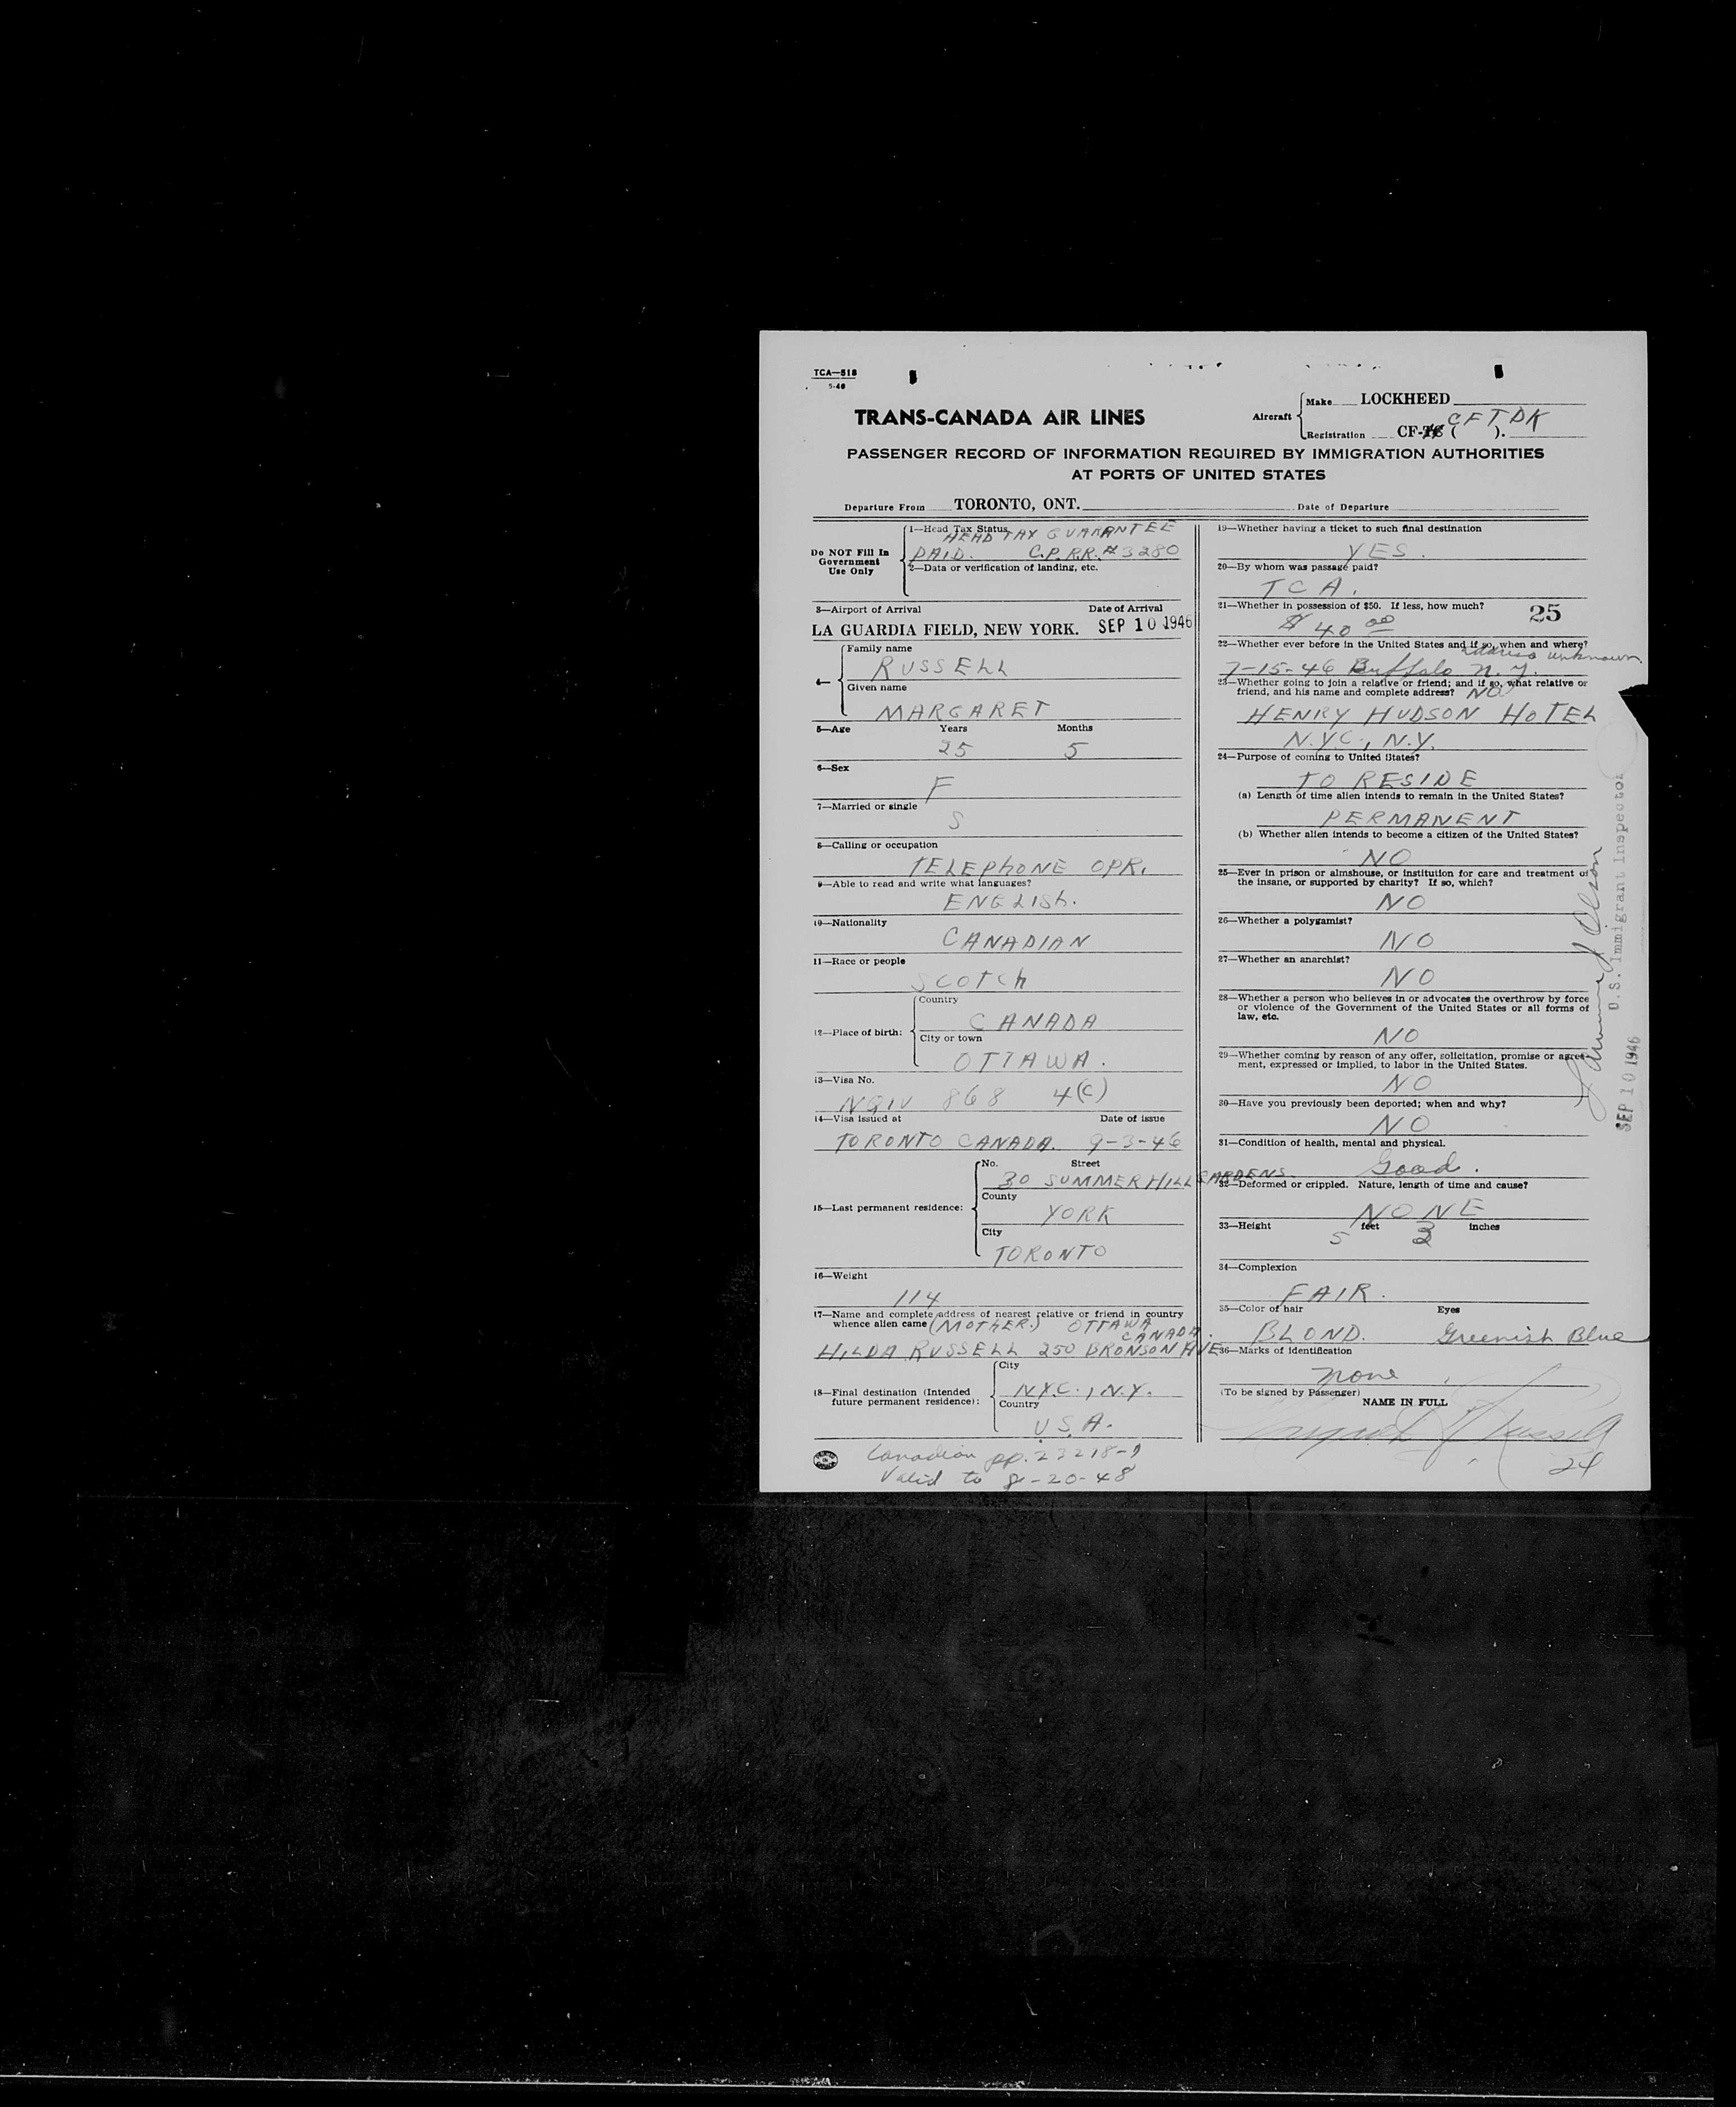 TCA—518
5-46
TRANS-CANADA AIR LINES
Aircraft
Make LOCKHEED
Registration CF-T ( ). CFTDK
PASSENGER RECORD OF INFORMATION REQUIRED BY IMMIGRATION AUTHORITIES
AT PORTS OF UNITED STATES
Departure From TORONTO, ONT. Date of Departure
Do NOT Fill In
Government
Use Only
1—Head Tax Status
HEAD TAX GUARANTEE
PAID. C.P.R.R. #3280
2—Data or verification of landing, etc.
3—Airport of Arrival Date of Arrival
LA GUARDIA FIELD, NEW YORK. SEP 10 1946
4—
Family name
RUSSELL
Given name
MARGARET
5—Age Years Months
25 5
6—Sex
F
7—Married or single
S
8—Calling or occupation
TELEPHONE OPR.
9—Able to read and write what languages?
ENGLISH.
10—Nationality
CANADIAN
11—Race or people
SCOTCH
12—Place of birth:
Country
CANADA
City or town
OTTAWA.
13—Visa No.
NQIV 868 4(C)
14—Visa issued at Date of issue
TORONTO CANADA. 9-3-46
15—Last permanent residence:
No. Street
30 SUMMERHILL GARDENS.
County
YORK
City
TORONTO
16—Weight
114
17—Name and complete address of nearest relative or friend in country
whence alien came (MOTHER.) OTTAWA
CANADA.
HILDA RUSSELL 250 BRONSON AVE
18—Final destination (Intended
future permanent residence):
City
N.Y.C., N.Y.
Country
U.S.A.
Canadian pp. 23218-9
Valid to 8-20-48
19—Whether having a ticket to such final destination
YES.
20—By whom was passage paid?
TCA.
21—Whether in possession of $50. If less, how much? 25
$40 00
22—Whether ever before in the United States and if so, when and where?
address unknown
7-15-46 Buffalo N.Y.
23—Whether going to join a relative or friend; and if so, what relative or
friend, and his name and complete address? NO
HENRY HUDSON HOTEL
N.Y.C., N.Y.
24—Purpose of coming to United States?
TO RESIDE
(a) Length of time alien intends to remain in the United States?
PERMANENT
(b) Whether alien intends to become a citizen of the United States?
NO
25—Ever in prison or almshouse, or institution for care and treatment of
the insane, or supported by charity? If so, which?
NO
26—Whether a polygamist?
NO
27—Whether an anarchist?
NO
28—Whether a person who believes in or advocates the overthrow by force
or violence of the Government of the United States or all forms of
law, etc.
NO
29—Whether coming by reason of any offer, solicitation, promise or agree-
ment, expressed or implied, to labor in the United States.
NO
30—Have you previously been deported; when and why?
NO
31—Condition of health, mental and physical.
Good.
32—Deformed or crippled. Nature, length of time and cause?
NONE
33—Height feet inches
5
34—Complexion
FAIR.
35—Color of hair Eyes
BLOND. Greenish Blue
36—Marks of identification
none
(To be signed by Passenger)
NAME IN FULL
Russell
24
U.S. Immigrant Inspector
SEP 10 1946